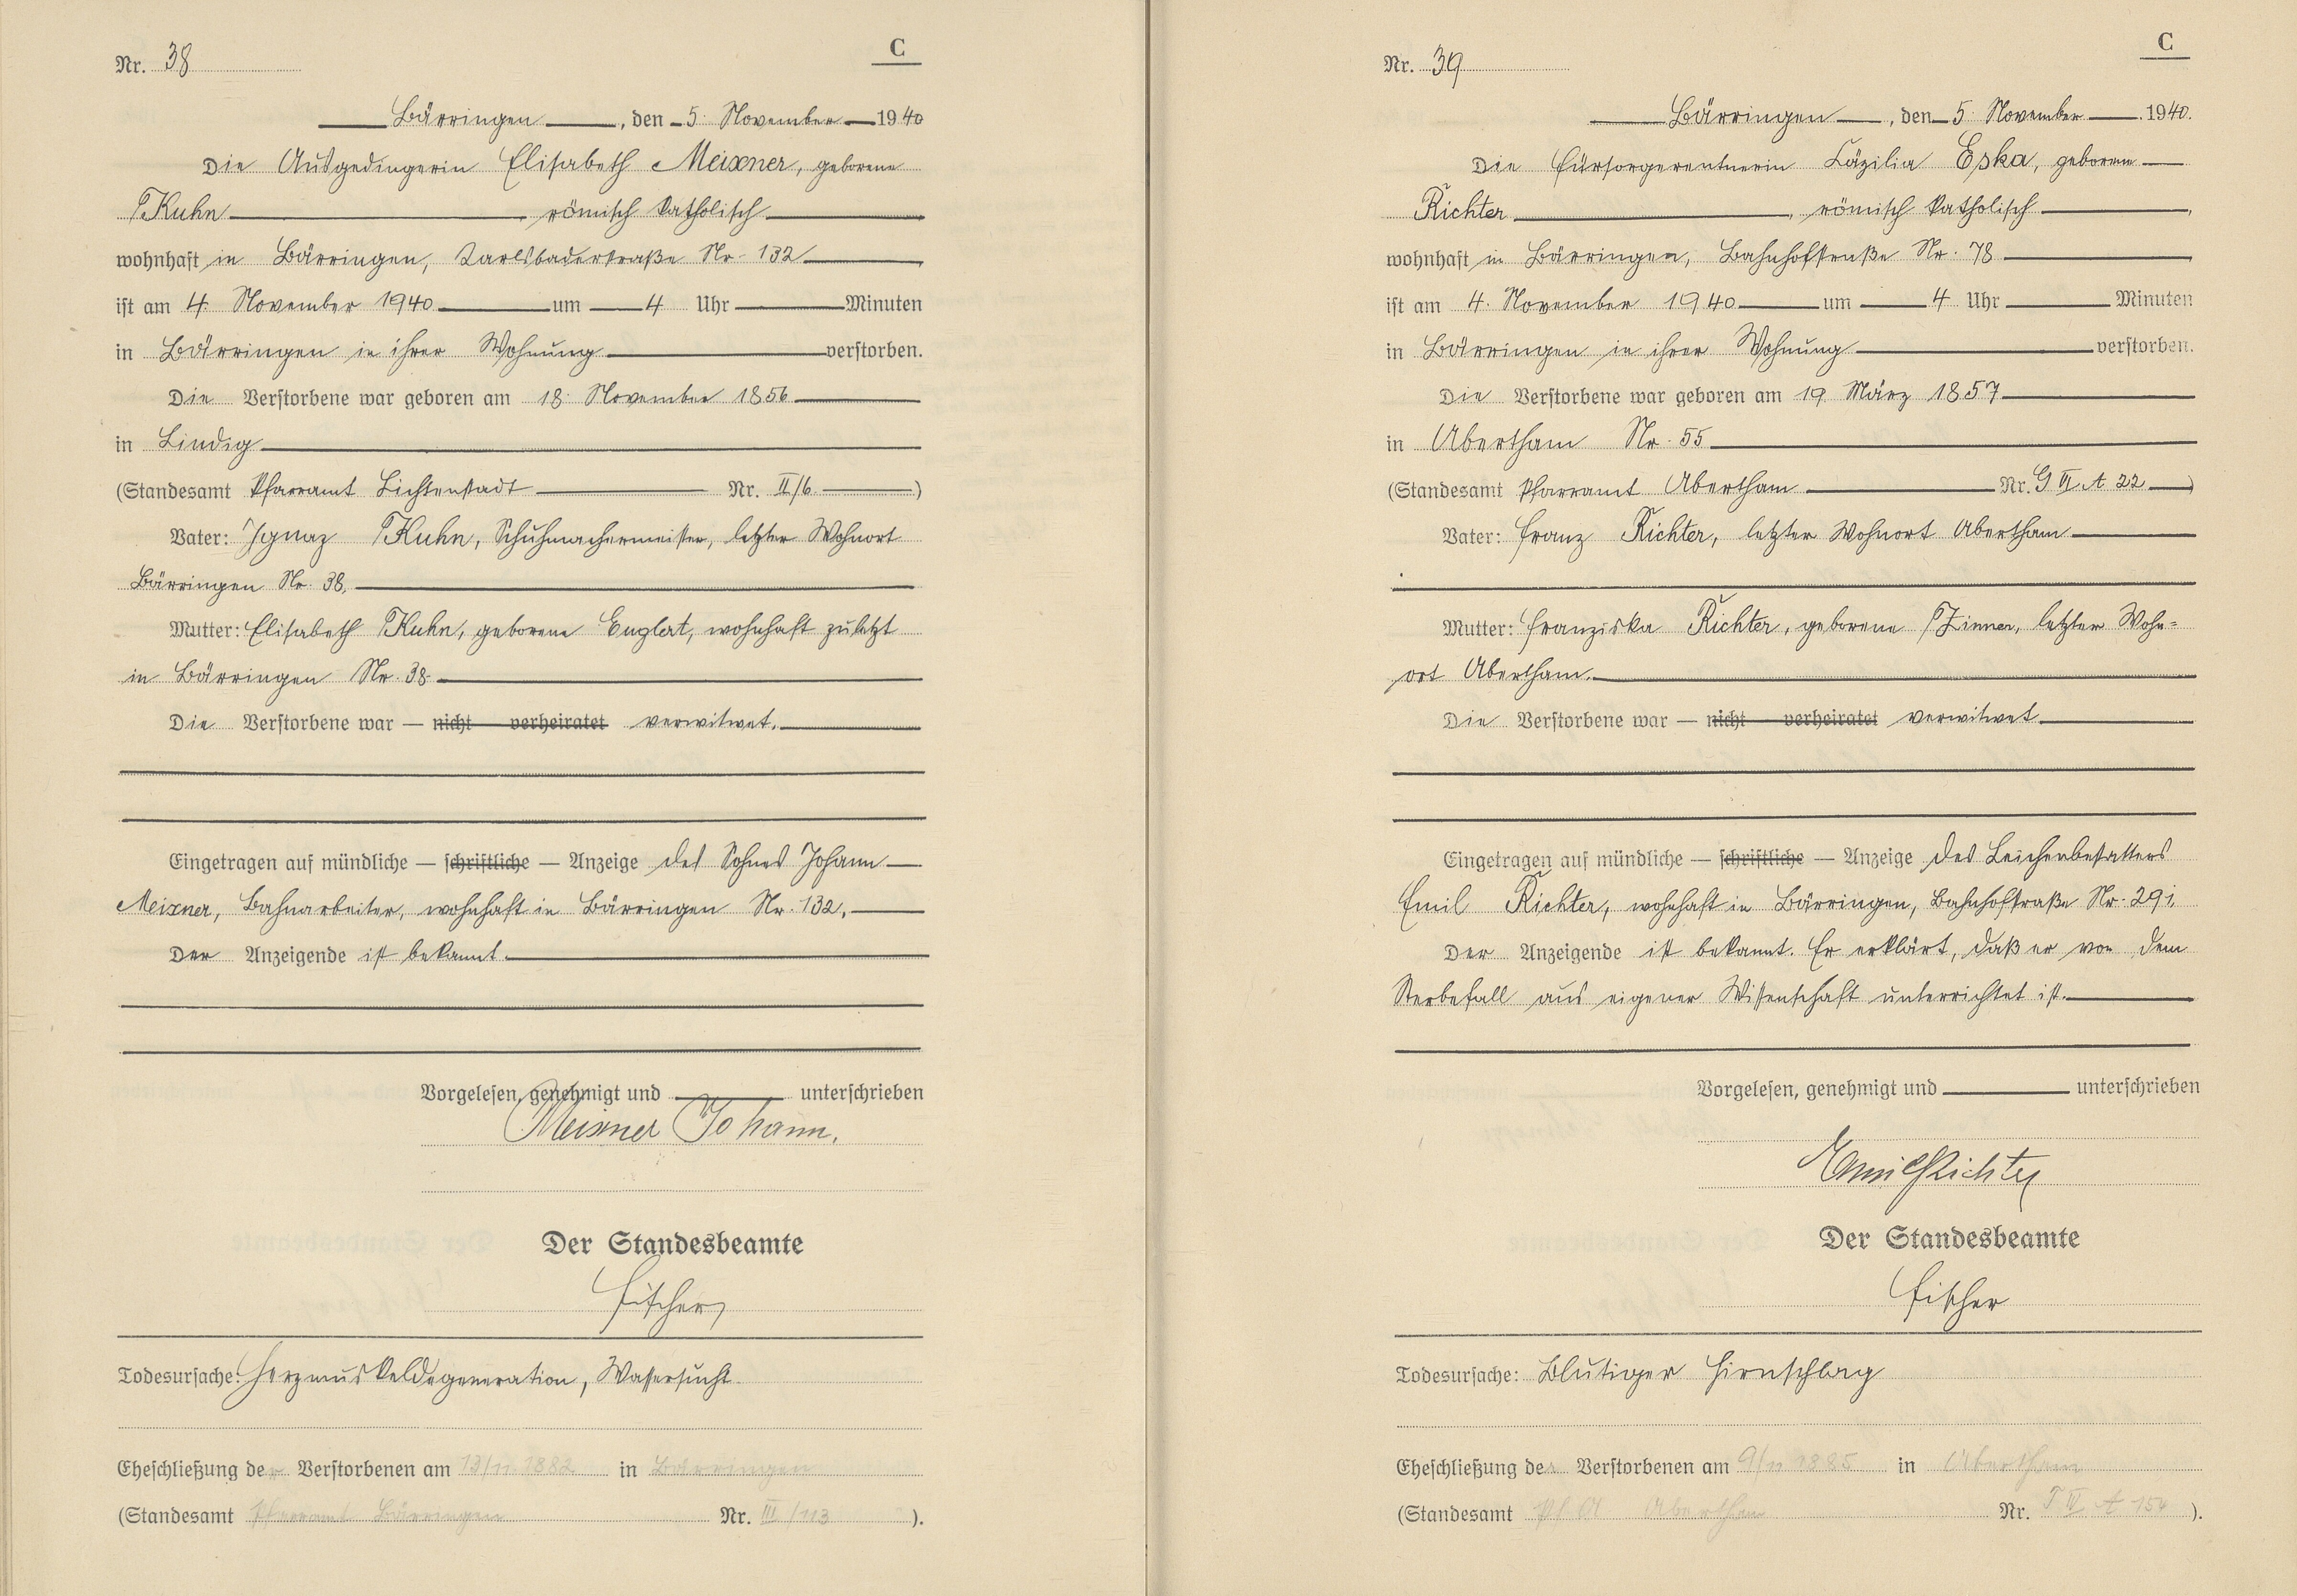 Nr. 38
C
Bärringen, den 5. November 1940
Die Ausgedingerin Elisabeth Meixner, geborene
Kuhn römisch katholisch
wohnhaft in Bärringen, Karlsbaderstraße Nr. 132
ist am 4. November 1940 um 4 Uhr Minuten
in Bärringen in ihrer Wohnung verstorben.
Die Verstorbene war geboren am 18. November 1856
in Lindig
(Standesamt Pfarramt Lichtenstadt Nr. II/6)
Vater: Ignaz Kuhn, Schuhmachermeister, letzter Wohnort
Bärringen Nr. 38.
Mutter: Elisabeth Kuhn, geborene Englert, wohnhaft zuletzt
in Bärringen Nr. 38
Die Verstorbene war — nicht verheiratet verwitwet.
Eingetragen auf mündliche — schriftliche — Anzeige des Sohnes Johann
Meixner, Bahnarbeiter, wohnhaft in Bärringen Nr. 132.
Der Anzeigende ist bekannt.
Vorgelesen, genehmigt und unterschrieben
Meixner Johann.
Der Standesbeamte
Fischer
Todesursache: Herzmuskeldegeneration, Wassersucht.
Eheschließung der Verstorbenen am 13/11 1882 in Bärringen
(Standesamt Pfarramt Bärringen Nr. III/113).
Nr. 39
C
Bärringen, den 5. November 1940.
Die Fürsorgerentnerin Zäzilia Eska, geborene
Richter, römisch katholisch,
wohnhaft in Bärringen, Bahnhofstraße Nr. 78
ist am 4. November 1940 um 4 Uhr Minuten
in Bärringen in ihrer Wohnung verstorben.
Die Verstorbene war geboren am 19. März 1857
in Abertham Nr. 55
(Standesamt Pfarramt Abertham Nr. G VI A 22)
Vater: Franz Richter, letzter Wohnort Abertham
Mutter: Franziska Richter, geborene Zinner, letzter Wohn=
ort Abertham.
Die Verstorbene war — nicht verheiratet verwitwet
Eingetragen auf mündliche — schriftliche — Anzeige des Leichenbestatters
Emil Richter, wohnhaft in Bärringen, Bahnhofstraße Nr. 291.
Der Anzeigende ist bekannt. Er erklärt, daß er von dem
Sterbefall aus eigener Wissenschaft unterrichtet ist.
Vorgelesen, genehmigt und unterschrieben
Emil Richter
Der Standesbeamte
Fischer
Todesursache: Blutiger Hirnschlag
Eheschließung der Verstorbenen am 9/11 1885 in Abertham
(Standesamt Pf. A Abertham Nr. T IV A 154).